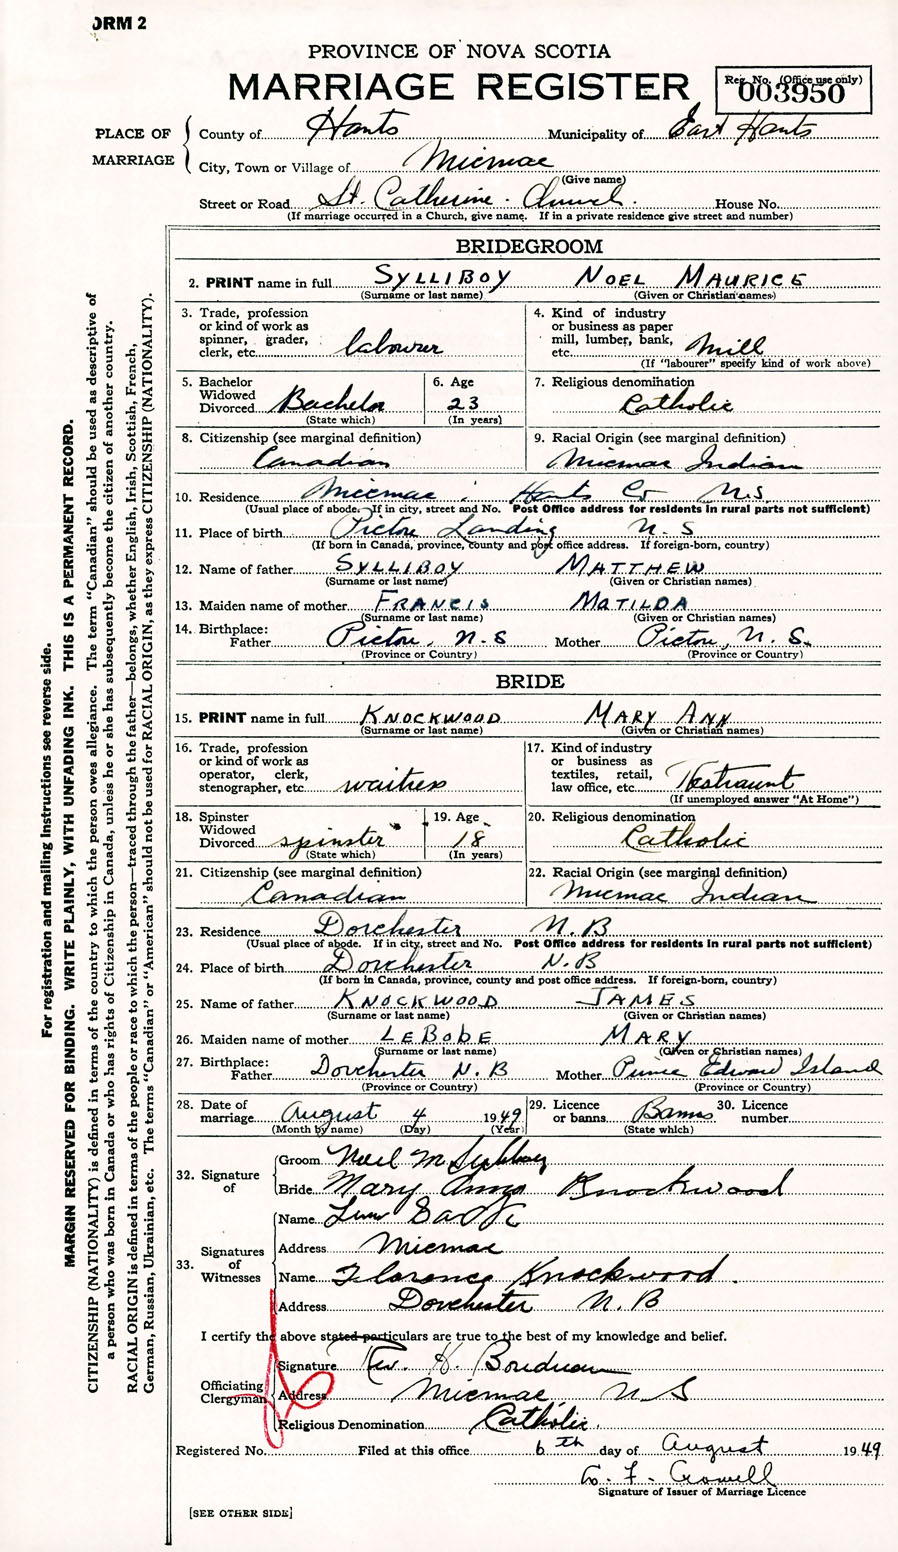 ORM 2
PROVINCE OF NOVA SCOTIA
MARRIAGE REGISTER
Reg. No. (Office use only)
003950
PLACE OF MARRIAGE
County of Hants Municipality of East Hants
City, Town or Village of Micmac
(Give name)
Street or Road St. Catherine Church. House No.
(If marriage occurred in a Church, give name. If in a private residence give street and number)
BRIDEGROOM
2. PRINT name in full SYLLIBOY NOEL MAURICE
(Surname or last name) (Given or Christian names)
3. Trade, profession or kind of work as spinner, grader, clerk, etc. labourer
4. Kind of industry or business as paper mill, lumber, bank, etc. Mill
(If "labourer" specify kind of work above)
5. Bachelor Widowed Divorced Bachelor
(State which)
6. Age 23
(In years)
7. Religious denomination
Catholic
8. Citizenship (see marginal definition)
Canadian
9. Racial Origin (see marginal definition)
Micmac Indian
10. Residence Micmac Hants Co N.S
(Usual place of abode. If in city, street and No. Post Office address for residents in rural parts not sufficient)
11. Place of birth Pictou Landing N.S
(If born in Canada, province, county and post office address. If foreign-born, country)
12. Name of father SYLLIBOY MATTHEW
(Surname or last name) (Given or Christian names)
13. Maiden name of mother FRANCIS MATILDA
(Surname or last name) (Given or Christian names)
14. Birthplace: Father Pictou, N.S Mother Pictou, N.S.
(Province or Country) (Province or Country)
BRIDE
15. PRINT name in full KNOCKWOOD MARY ANN
(Surname or last name) (Given or Christian names)
16. Trade, profession or kind of work as operator, clerk, stenographer, etc waitress
17. Kind of industry or business as textiles, retail, law office, etc. Restraunt
(If unemployed answer "At Home")
18. Spinster Widowed Divorced spinster
(State which)
19. Age 18
(In years)
20. Religious denomination
Catholic
21. Citizenship (see marginal definition)
Canadian
22. Racial Origin (see marginal definition)
Micmac Indian
23. Residence Dorchester N.B
(Usual place of abode. If in city, street and No. Post Office address for residents in rural parts not sufficient)
24. Place of birth Dorchester N.B
(If born in Canada, province, county and post office address. If foreign-born, country)
25. Name of father KNOCKWOOD JAMES
(Surname or last name) (Given or Christian names)
26. Maiden name of mother LEBOBE MARY
(Surname or last name) (Given or Christian names)
27. Birthplace: Father Dorchester N.B Mother Prince Edward Island
(Province or Country) (Province or Country)
28. Date of marriage August 4 1949
(Month by name) (Day) (Year)
29. Licence or banns Banns
(State which)
30. Licence number
32. Signature of
Groom Noel M Sylliboy
Bride Mary Ann Knockwood
33. Signatures of Witnesses
Name
Address Micmac
Name Florence Knockwood.
Address Dorchester N.B
I certify the above stated particulars are true to the best of my knowledge and belief.
Officiating Clergyman
Signature Rev. H. Boudreau
Address Micmac N S
Religious Denomination Catholic.
Registered No. Filed at this office 6th day of August 1949
F. Crowell
Signature of Issuer of Marriage Licence
[SEE OTHER SIDE]
For registration and mailing instructions see reverse side.
MARGIN RESERVED FOR BINDING. WRITE PLAINLY, WITH UNFADING INK. THIS IS A PERMANENT RECORD.
CITIZENSHIP (NATIONALITY) is defined in terms of the country to which the person owes allegiance. The term "Canadian" should be used as descriptive of
a person who was born in Canada or who has rights of Citizenship in Canada, unless he or she has subsequently become the citizen of another country.
RACIAL ORIGIN is defined in terms of the people or race to which the person—traced through the father—belongs, whether English, Irish, Scottish, French,
German, Russian, Ukrainian, etc. The terms "Canadian" or "American" should not be used for RACIAL ORIGIN, as they express CITIZENSHIP (NATIONALITY).